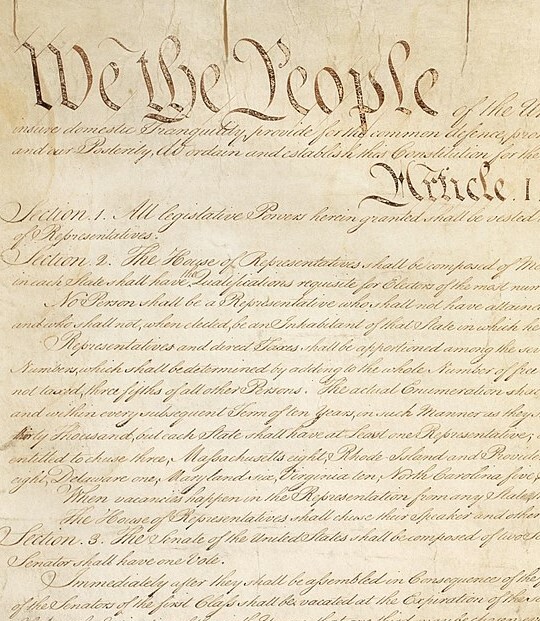 We the People of the Un
insure domestic Tranquility, provide for the common defence, pro
and our Posterity, do ordain and establish this Constitution for the
Article. I.
Section. 1. All legislative Powers herein granted shall be vested
of Representatives.
Section. 2. The House of Representatives shall be composed of Me
in each State shall have the Qualifications requisite for Electors of the most num
No Person shall be a Representative who shall not have attained
and who shall not, when elected, be an Inhabitant of that State in which he
Representatives and direct Taxes shall be apportioned among the sev
Numbers, which shall be determined by adding to the whole Number of free
not taxed, three fifths of all other Persons. The actual Enumeration sha
and within every subsequent Term of ten Years, in such Manner as they
thirty Thousand, but each State shall have at Least one Representative;
entitled to chuse three, Massachusetts eight, Rhode-Island and Provide
eight, Delaware one, Maryland six, Virginia ten, North Carolina five,
When vacancies happen in the Representation from any State
The House of Representatives shall chuse their Speaker and other
Section. 3. The Senate of the United States shall be composed of two Se
Senator shall have one Vote.
Immediately after they shall be assembled in Consequence of the
of the Senators of the first Class shall be vacated at the Expiration of the